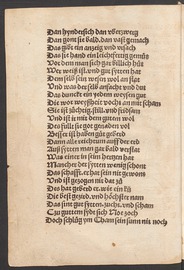 Dan hyndersich dan vberzwerg
Dan gont sie bald, dan vast gemach
Das gibt ein anzeig vnd vrsach
Das sie hand ein leichtfertig gemüt
Vor dem man sich gar billich hüt
Wer weiß ist, vnd gut sytten hat
Dem selb sin wesen wol an stat
Vnd was der selb anfacht vnd thůt
Das dunckt ein yeden wysen gůt
Die wor wyßheit voch an mit scham
Sie ist züchtig, still, vnd fridsam
Vnd ist ir mit dem gůtten wol
Des füllt sie got genaden vol
Besser ist haben gůt geberd
Dann alle richtům vff der erd
Vß sytten man gar bald verstat
Was einer in sym hertzen hat
Mancher der sytten wenig schont
Das schafft, er hat sein nit gewont
Vnd ist gezogen nit dar zů
Das hat geberd er, wie ein ků
Die best gezierd, vnd höchster nam
Das sint gůt sytten, zucht, vnd scham
Noe zoch
Doch schlůg im Cham sein sun nit noch